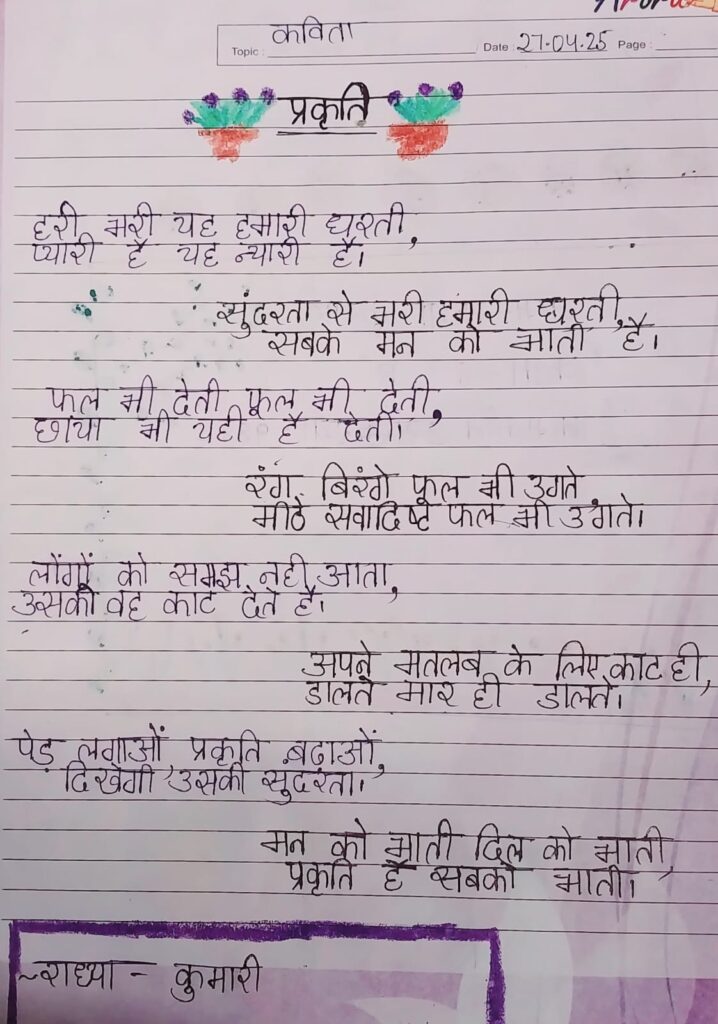 कविता
Topic :
Date : 27.04.25 Page :
प्रकृति
हरी भरी यह हमारी धरती,
प्यारी है यह न्यारी है।
सुंदरता से भरी हमारी धरती,
सबके मन को भाती है।
फल भी देती फूल भी देती,
छाया भी यही है देती।
रंग बिरंगे फूल भी उगते,
मीठे सवादिष्ट फल भी उगते।
लोंगों को समझ नही आता,
उसको वह काट देते है।
अपने मतलब के लिए काट ही,
डालते मार ही डालते।
पेड़ लगाओं, प्रकृति बढ़ाओं,
दिखेगी उसकी सुदरता।
मन को भाती दिल को भाती,
प्रकृति है सबको भाती।
~राध्या - कुमारी